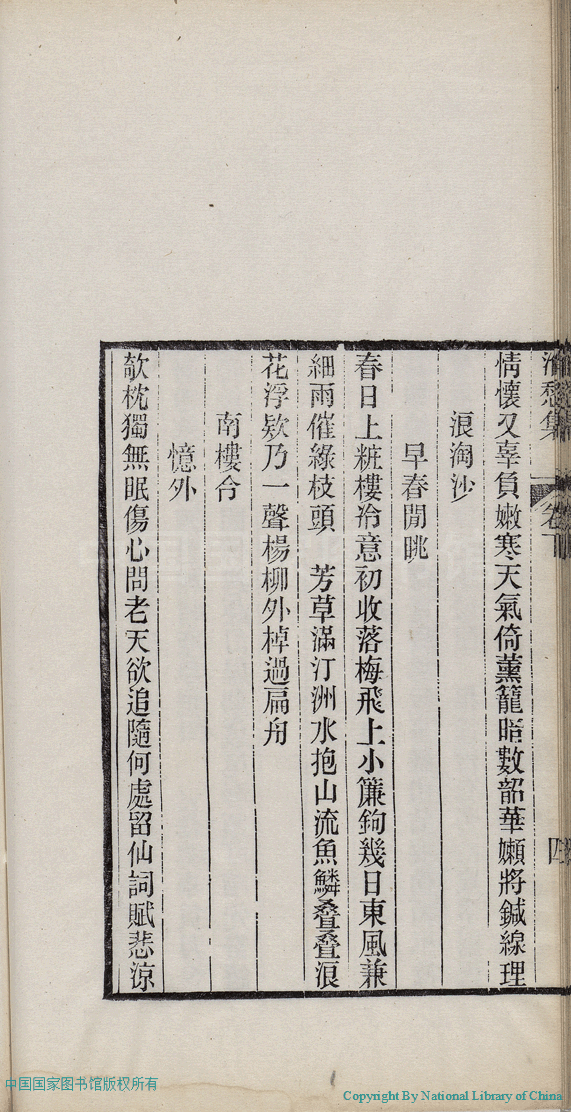 愁集 卷下 四
情懷又辜負嫩寒天氣倚薰籠暗數韶華嬾將鍼線理
浪淘沙
早春閒眺
春日上粧樓冷意初收落梅飛上小簾鉤幾日東風兼
細雨催綠枝頭　芳草滿汀洲水抱山流魚鱗叠叠浪
花浮欸乃一聲楊柳外棹過扁舟
南樓令
憶外
欹枕獨無眠傷心問老天欲追隨何處留仙詞賦悲涼
中国国家图书馆版权所有
Copyright By National Library of China